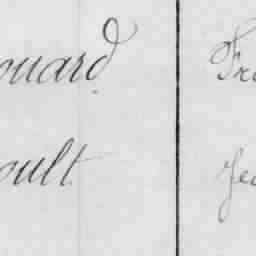 ouard Fra
oult Jea